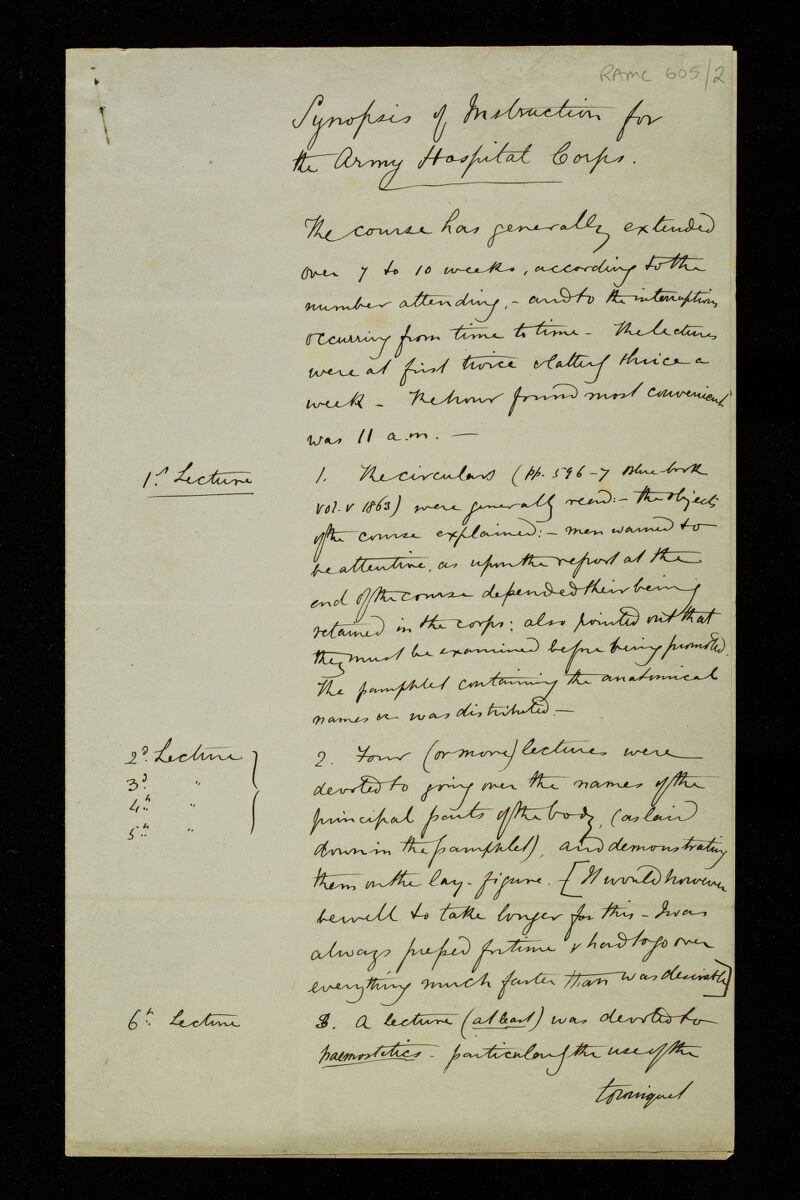 RAMC 605/2
Synopsis of Instruction for
the Army Hospital Corps.
The course has generally extended
over 7 to 10 weeks, according to the
number attending, - and to the interruptions
occurring from time to time - The lectures
were at first twice & latterly thrice a
week - The hour found most convenient
was 11 a.m. —
1st Lecture
1. The circulars (pp. 596-7 Blue book
vol. V 1863) were generally read:- the objects
of the course explained:- men warned to
be attentive, as upon the report at the
end of the course depended their being
retained in the corps: also pointed out that
they must be examined before being promoted.
The pamphlet containing the anatomical
names &c was distributed. —
2d. Lecture
3d. "
4th. "
5th. "
2. Four (or more) lectures were
devoted to going over the names of the
principal parts of the body, (as laid
down in the pamphlet), and demonstrating
them on the lay-figure. [It would however
be well to take longer for this - I was
always pressed for time & had to go over
everything much faster than was desirable]
6th. Lecture
3. A lecture (at least) was devoted to
haemostatics - particularly the use of the
tourniquet